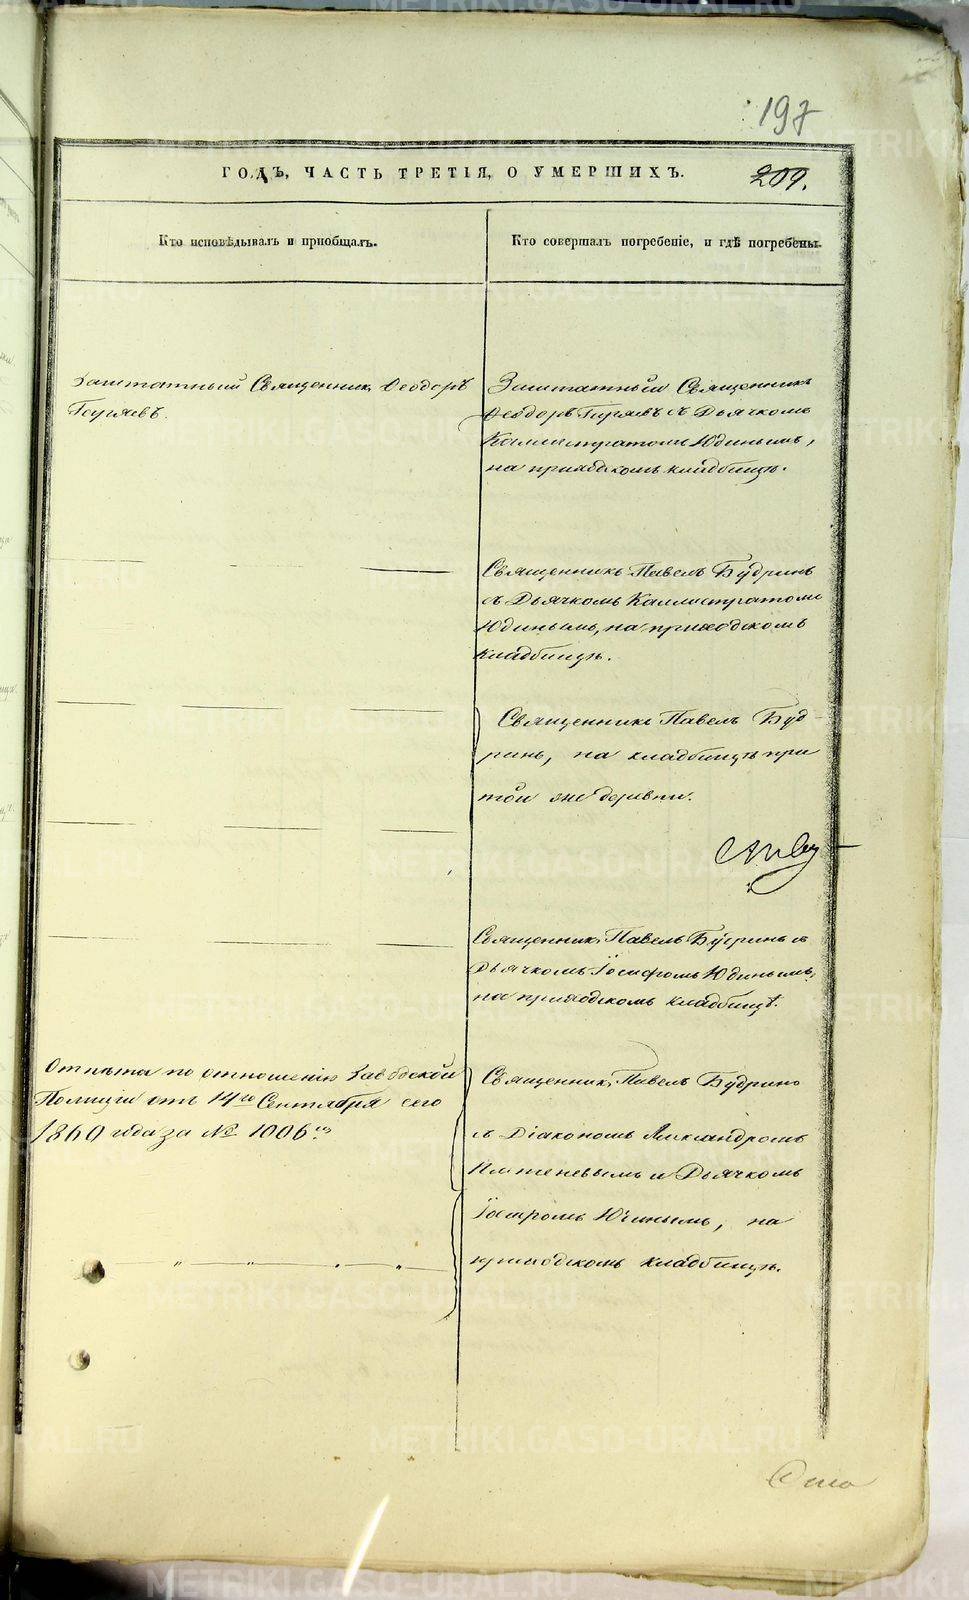 197
ГОДЪ, ЧАСТЬ ТРЕТІЯ, О УМЕРШИХЪ.
209.
Кто исповѣдывалъ и пріобщалъ.
Кто совершалъ погребеніе, и гдѣ погребены.
Заштатный Священникъ Ѳеодоръ
Заштатный Священникъ
Ѳеодоръ съ Дьячкомъ
Каллистратомъ Юдинымъ,
на приходскомъ кладбищѣ.
Священникъ Павелъ Будринъ
съ Дьячкомъ Каллистратомъ
Юдинымъ, на приходскомъ
кладбищѣ.
Священникъ Павелъ Буд-
ринъ, на кладбищѣ при
той же деревни.
Священникъ Павелъ Будринъ съ
Дьячкомъ Іосифомъ Юдинымъ,
на приходскомъ кладбищѣ.
Отпѣта по отношенію Заводской
Полиціи отъ 14го Сентября сего
1860 года за № 1006мъ
Священникъ Павелъ Будринъ
съ Діакономъ Александромъ
и Дьячкомъ
Іосифомъ Юдинымъ, на
приходскомъ кладбищѣ.
METRIKI.GASO-URAL.RU